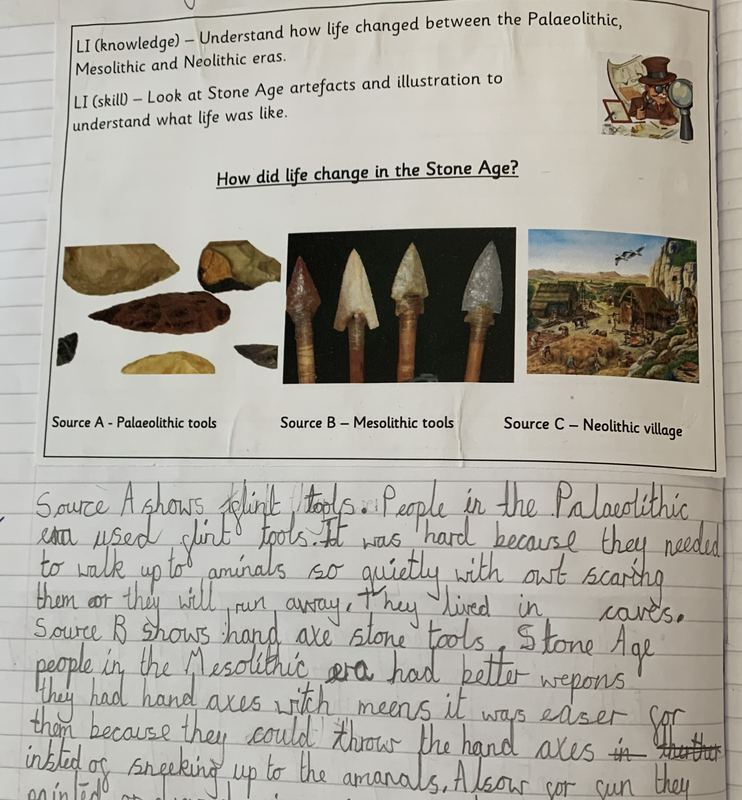 LI (knowledge) – Understand how life changed between the Palaeolithic,
Mesolithic and Neolithic eras.
LI (skill) – Look at Stone Age artefacts and illustration to
understand what life was like.
How did life change in the Stone Age?
Source A - Palaeolithic tools
Source B – Mesolithic tools
Source C – Neolithic village
Source A shows flint tools. People in the Palaeolithic
era used flint tools. It was hard because they needed
to walk up to aminals so quietly with owt scaring
them or they will run away. They lived in caves.
Source B shows hand axe stone tools. Stone Age
people in the Mesolithic era had better wepons
they had hand axes witch meens it was easer for
them because they could throw the hand axes in
insted of sneeking up to the amanals. Alsow for fun they
painted